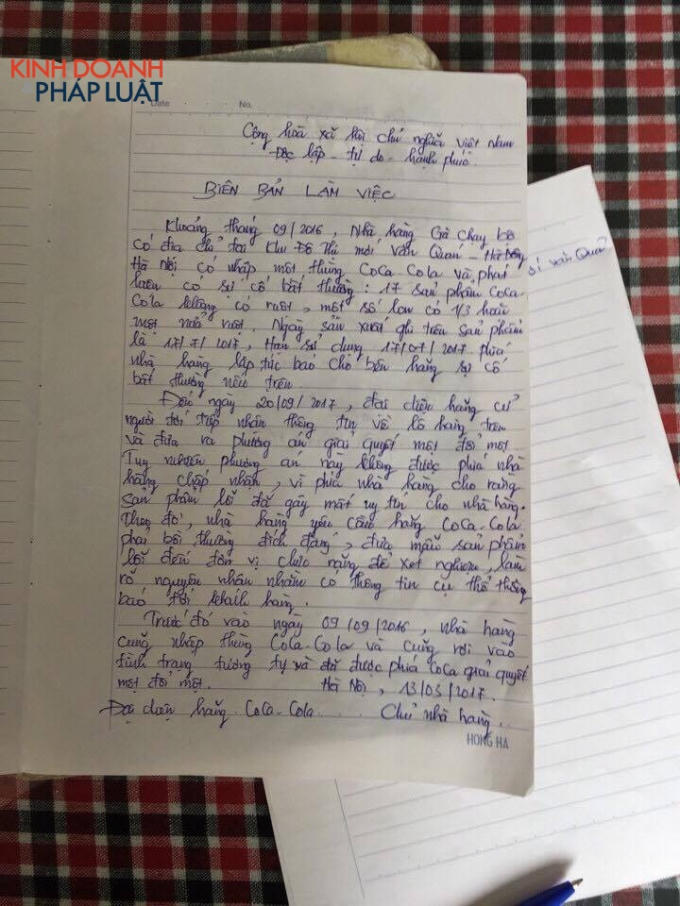 KINH DOANH
PHÁP LUẬT
Date No.
Cộng hòa xã hội chủ nghĩa Việt Nam
Độc lập - tự do - hạnh phúc
BIÊN BẢN LÀM VIỆC
Khoảng tháng 09/2016, Nhà hàng Gà Chạy bộ
có địa chỉ tại Khu Đô Thị mới Văn Quán - Hà Đông
Hà Nội có nhập một thùng CoCa Cola và phát
hiện có sự cố bất thường: 17 sản phẩm CoCa
Cola không có ruột, một số lon có 1/3 hoặc
một nửa ruột. Ngày sản xuất ghi trên sản phẩm
là 17/7/2017, Hạn sử dụng 17/07/2017 phía
nhà hàng lập tức báo cho bên hãng sự cố
bất thường nêu trên.
Đến ngày 20/09/2017, đại diện hãng cử
người tới tiếp nhận thông tin về lô hàng trên
và đưa ra phương án giải quyết một đổi một
Tuy nhiên phương án này không được phía nhà
hàng chấp nhận, vì phía nhà hàng cho rằng
sản phẩm lỗi đã gây mất uy tín cho nhà hàng.
Theo đó, nhà hàng yêu cầu hãng CoCa-Cola
phải bồi thường đích đáng, đưa mẫu sản phẩm
lỗi đến đơn vị chức năng để xét nghiệm, làm
rõ nguyên nhân nhằm có thông tin cụ thể thông
báo tới khách hàng.
Trước đó vào ngày 09/09/2016, nhà hàng
cũng nhập thùng CoCa-Cola và cũng rơi vào
tình trạng tương tự và đã được phía CoCa giải quyết
một đổi một. Hà Nội, 13/03/2017.
Đại diện hãng CoCa-Cola Chủ nhà hàng.
HỒNG HÀ
Văn Quán